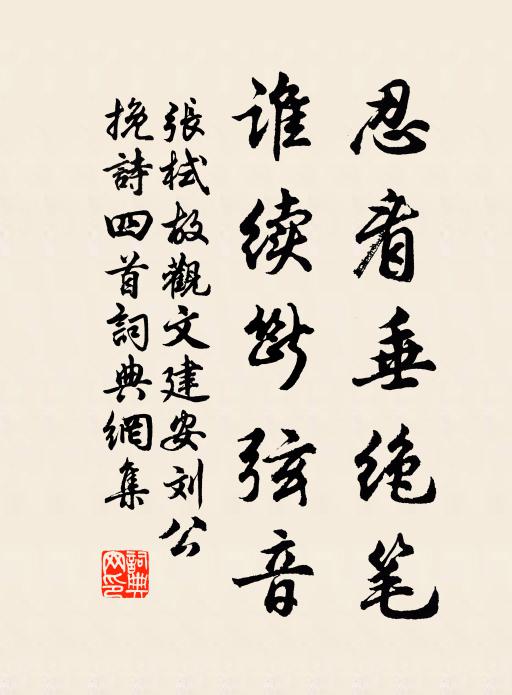 忍看垂绝笔
谁续断弦音
張栻故觀文建安刘公
挽詩四首詞典網集
詞典網印